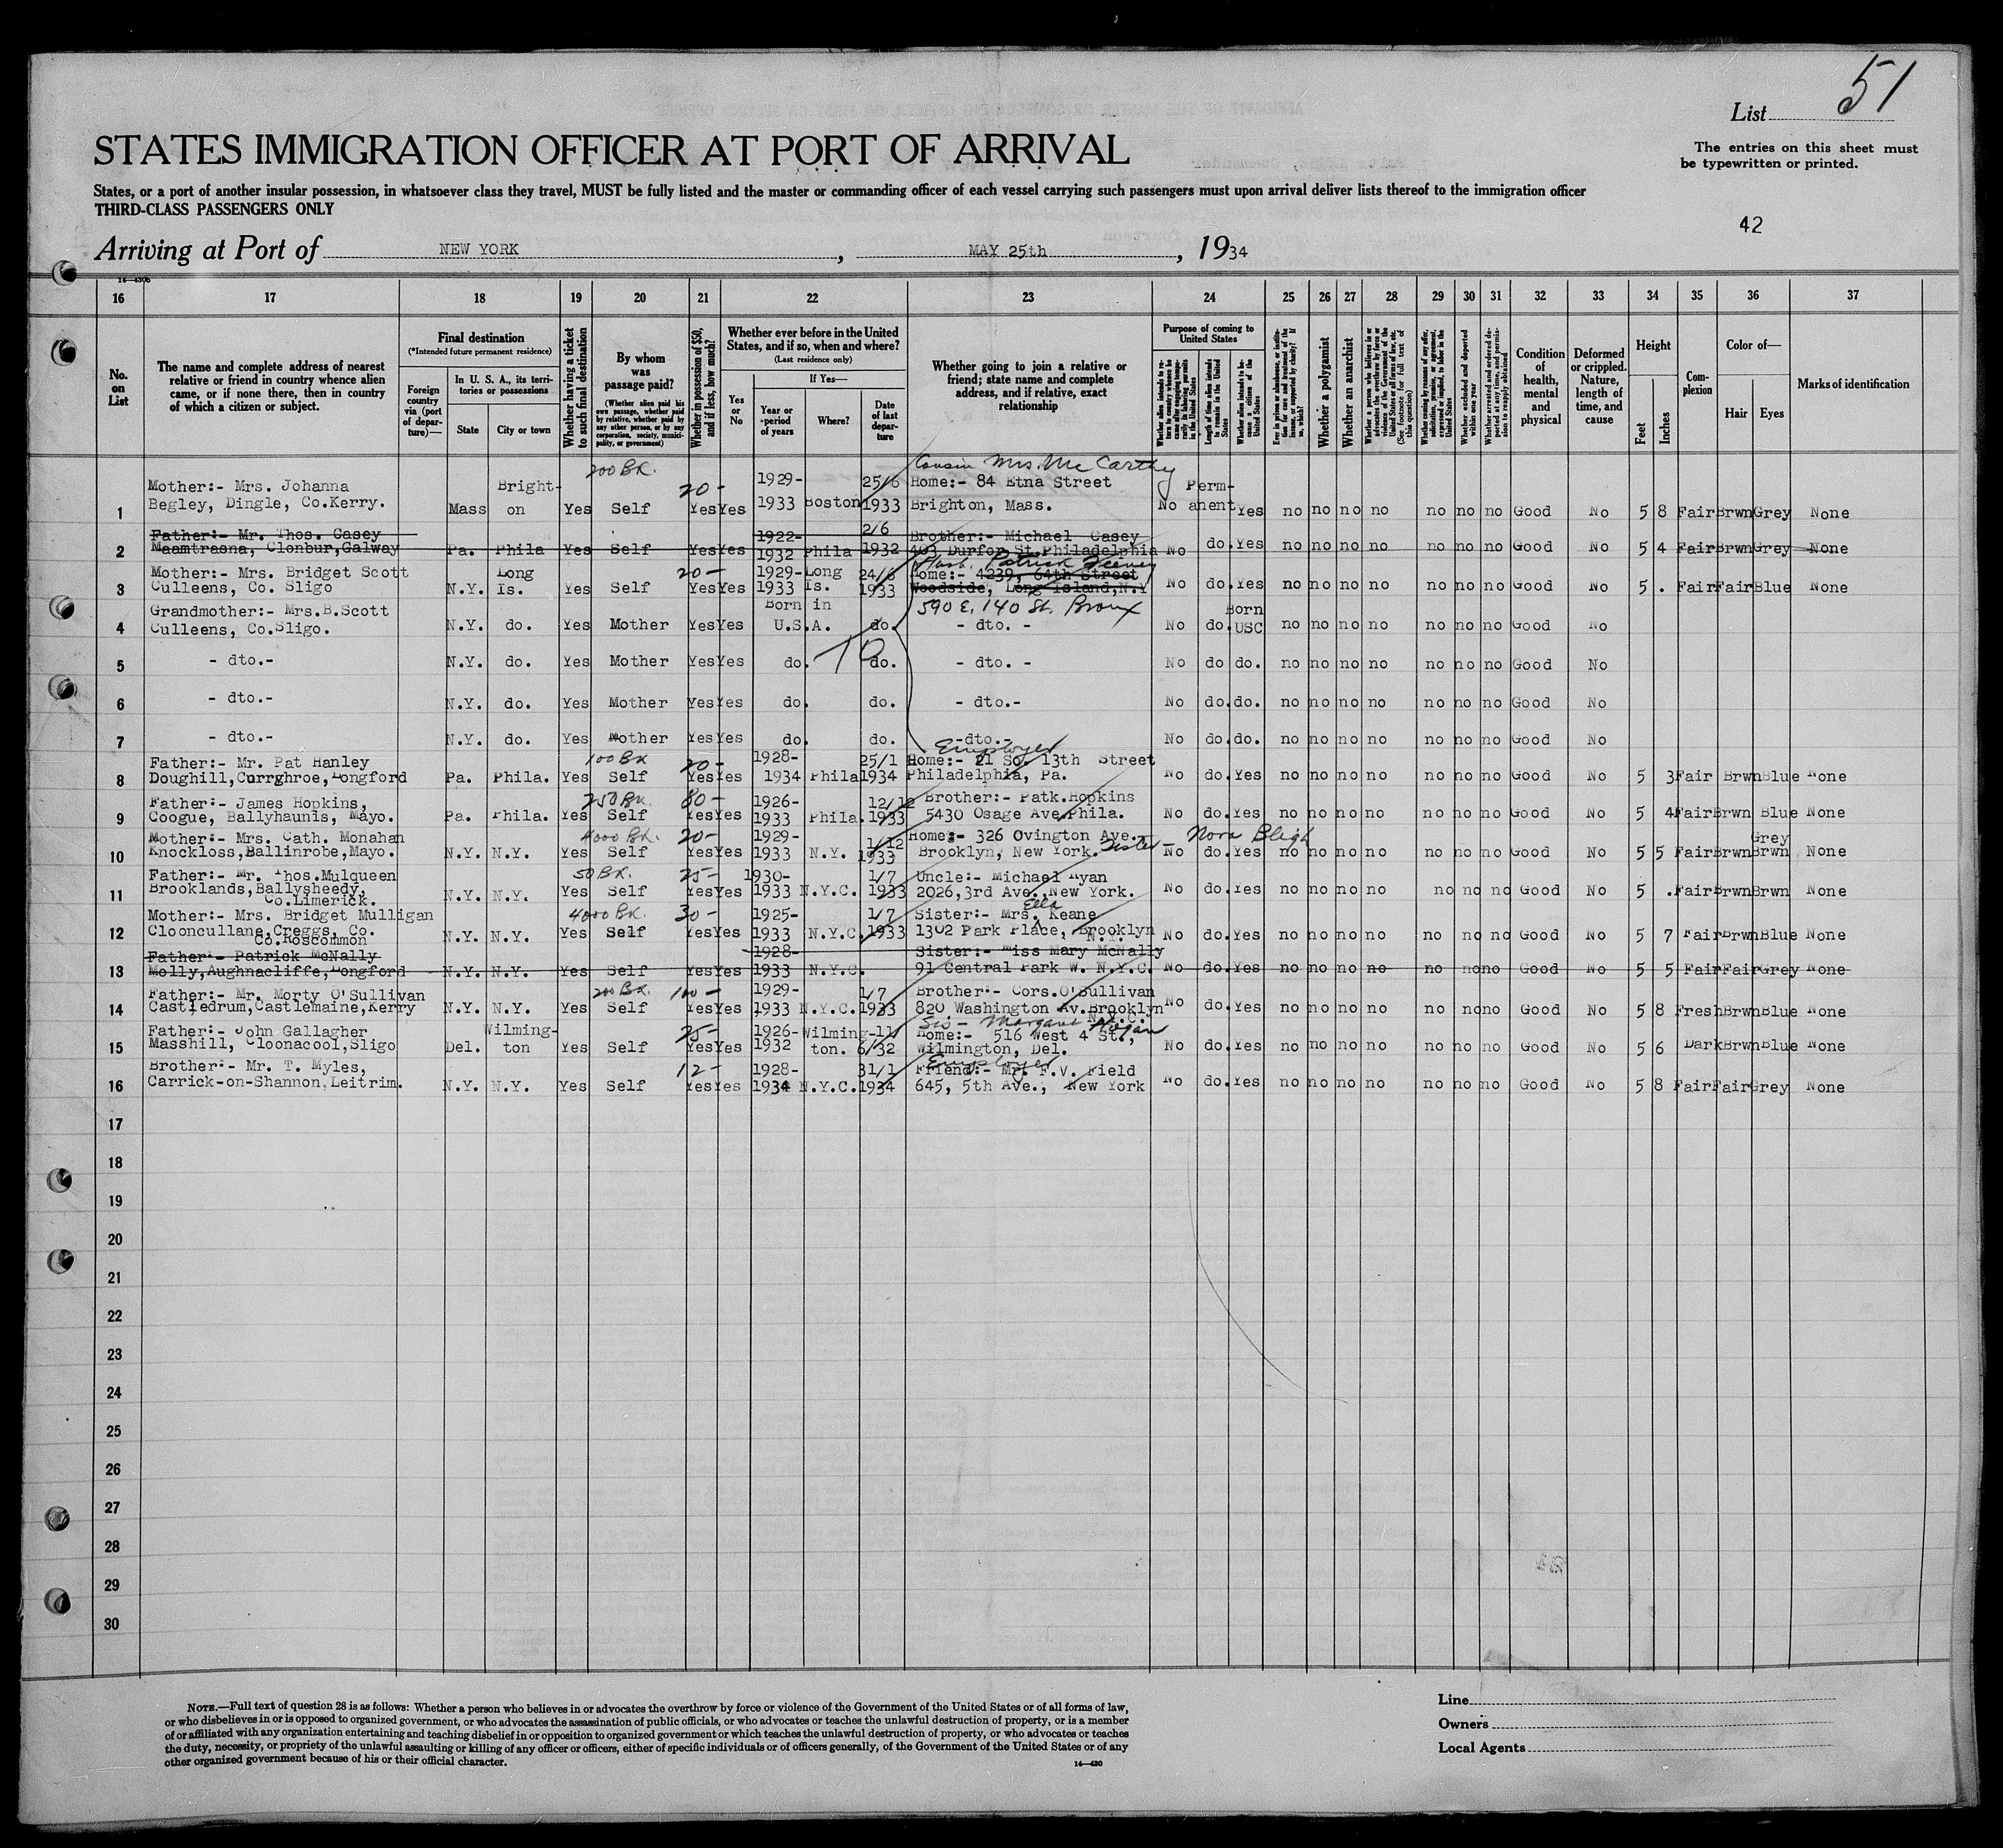 List 51
STATES IMMIGRATION OFFICER AT PORT OF ARRIVAL
The entries on this sheet must
be typewritten or printed.
States, or a port of another insular possession, in whatsoever class they travel, MUST be fully listed and the master or commanding officer of each vessel carrying such passengers must upon arrival deliver lists thereof to the immigration officer
THIRD-CLASS PASSENGERS ONLY
42
Arriving at Port of NEW YORK, MAY 25th, 1934
16 17 18 19 20 21 22 23 24 25 26 27 28 29 30 31 32 33 34 35 36 37
No. on List
The name and complete address of nearest
relative or friend in country whence alien
came, or if none there, then in country
of which a citizen or subject.
Final destination
(*Intended future permanent residence)
Foreign country via (port of departure)—
In U. S. A., its territories or possessions
State
City or town
Whether having a ticket to such final destination
By whom was passage paid?
(Whether alien paid his own passage, whether paid by relative, whether paid by any other person, or by any corporation, society, municipality, or government)
Whether in possession of $50, and if less, how much?
Whether ever before in the United States, and if so, when and where?
(Last residence only)
Yes or No
If Yes—
Year or period of years
Where?
Date of last departure
Whether going to join a relative or
friend; state name and complete
address, and if relative, exact
relationship
Purpose of coming to United States
Length of time alien intends to remain in the United States
Whether alien intends to become a citizen of the United States
Whether a polygamist
Whether an anarchist
Condition of health, mental and physical
Deformed or crippled. Nature, length of time, and cause
Height
Feet
Inches
Complexion
Color of—
Hair
Eyes
Marks of identification
200 Bk. Cousin Mrs. McCarthy
Mother:- Mrs. Johanna Bright- 20- 1929- 25/6 Home:- 84 Etna Street Perm-
1 Begley, Dingle, Co.Kerry. Mass on Yes Self Yes Yes 1933 Boston 1933 Brighton, Mass. No anent Yes no no no no no no no Good No 5 8 Fair Brwn Grey None
Father:- Mr. Thos. Casey 1922- 2/6 Brother:- Michael Casey
2 Maamtrasna, Clonbur,Galway Pa. Phila Yes Self Yes Yes 1932 Phila 1932 403 Durfor St.Philadelphia No do. Yes no no no no no no no Good No 5 4 Fair Brwn Grey None
Husb. Patrick Feeney
Mother:- Mrs. Bridget Scott Long 20- 1929- Long 24/6 Home:- 4239, 64th Street
3 Culleens, Co. Sligo N.Y. Is. Yes Self Yes Yes 1933 Is. 1933 Woodside, Long Island,N.Y No do. Yes no no no no no no no Good No 5 . Fair Fair Blue None
Grandmother:- Mrs.B.Scott Born in 590 E. 140 St. Bronx Born
4 Culleens, Co.Sligo. N.Y. do. Yes Mother Yes Yes U.S.A. do. - dto. - No do. USC no no no no no no no Good No
5 - dto.- N.Y. do. Yes Mother Yes Yes do. 10 do. - dto. - No do do. no no no no no no no Good No
6 - dto.- N.Y. do. Yes Mother Yes Yes do. do. - dto.- No do. do. no no no no no no no Good No
7 - dto.- N.Y. do. Yes Mother Yes Yes do. do. -dto.- No do. do. no no no no no no no Good No
100 Bk Employer
Father:- Mr. Pat Hanley 20- 1928- 25/1 Home:- 21 So. 13th Street
8 Doughill,Currghroe,Longford Pa. Phila. Yes Self Yes Yes 1934 Phila 1934 Philadelphia, Pa. No do. Yes no no no no no no no Good No 5 3 Fair Brwn Blue None
Father:- James Hopkins, 250 Bk. 80- 1926- 12/12 Brother:- Patk.Hopkins
9 Coogue, Ballyhaunis, Mayo. Pa. Phila. Yes Self Yes Yes 1933 Phila. 1933 5430 Osage Ave,Phila. No do. Yes no no no no no no no Good No 5 4 Fair Brwn Blue None
Mother:- Mrs. Cath. Monahan 4000 Bk. 20- 1929- 1/12 Home:- 326 Ovington Ave. Nora Bligh Grey
10 Knockloss,Ballinrobe,Mayo. N.Y. N.Y. Yes Self Yes Yes 1933 N.Y. 1933 Brooklyn, New York. Sister- No do. Yes no no no no no no no Good No 5 5 Fair Brwn Brwn None
Father:- Mr. Thos.Mulqueen 50 Bk. 25- 1930- 1/7 Uncle:- Michael Ryan
11 Brooklands,Ballysheedy, N.Y. N.Y. Yes Self Yes Yes 1933 N.Y.C. 1933 2026,3rd Ave.,New York. No do. Yes no no no no no no no Good No 5 . Fair Brwn Brwn None
Co.Limerick. Ella
Mother:- Mrs. Bridget Mulligan 4000 Bk. 30- 1925- 1/7 Sister:- Mrs. Keane
12 Clooncullane,Creggs, Co. N.Y. N.Y. Yes Self Yes Yes 1933 N.Y.C. 1933 1302 Park Place, Brooklyn No do. Yes no no no no no no no Good No 5 7 Fair Brwn Blue None
Co.Roscommon N.Y.
Father- Patrick McNally 1928- Sister:- Miss Mary McNally
13 Molly,Aughnacliffe,Longford N.Y. N.Y. Yes Self Yes Yes 1933 N.Y.C. 91 Central Park W. N.Y.C. No do. Yes no no no no no no no Good No 5 5 Fair Fair Grey None
Father:- Mr. Morty O'Sullivan 200 Bk. 100- 1929- 1/7 Brother:- Cors.O'Sullivan
14 Castledrum,Castlemaine,Kerry N.Y. N.Y. Yes Self Yes Yes 1933 N.Y.C. 1933 820 Washington Av.Brooklyn No do. Yes no no no no no no no Good No 5 8 Fresh Brwn Blue None
N.Y.C.
Sis- Margaret Hogan
Father:- John Gallagher Wilming- 25- 1926- Wilming- 11/ Home:- 516 West 4 St.,
15 Masshill, Cloonacool,Sligo Del. ton Yes Self Yes Yes 1932 ton. 6/32 Wilmington, Del. No do. Yes no no no no no no no Good No 5 6 Dark Brwn Blue None
Employer
Brother:- Mr. T. Myles, 12- 1928- 31/1 Friend:- Mr. F.V. Field
16 Carrick-on-Shannon,Leitrim. N.Y. N.Y. Yes Self Yes Yes 1934 N.Y.C. 1934 645, 5th Ave., New York No do. Yes no no no no no no no Good No 5 8 Fair Fair Grey None
17
18
19
20
21
22
23
24
25
26
27
28
29
30
NOTE.—Full text of question 28 is as follows: Whether a person who believes in or advocates the overthrow by force or violence of the Government of the United States or of all forms of law,
or who disbelieves in or is opposed to organized government, or who advocates the assassination of public officials, or who advocates or teaches the unlawful destruction of property, or is a member
of or affiliated with any organization entertaining and teaching disbelief in or opposition to organized government or which teaches the unlawful destruction of property, or who advocates or teaches
the duty, necessity, or propriety of the unlawful assaulting or killing of any officer or officers, either of specific individuals or of officers generally, of the Government of the United States or of any
other organized government because of his or their official character.
14—430
Line
Owners
Local Agents